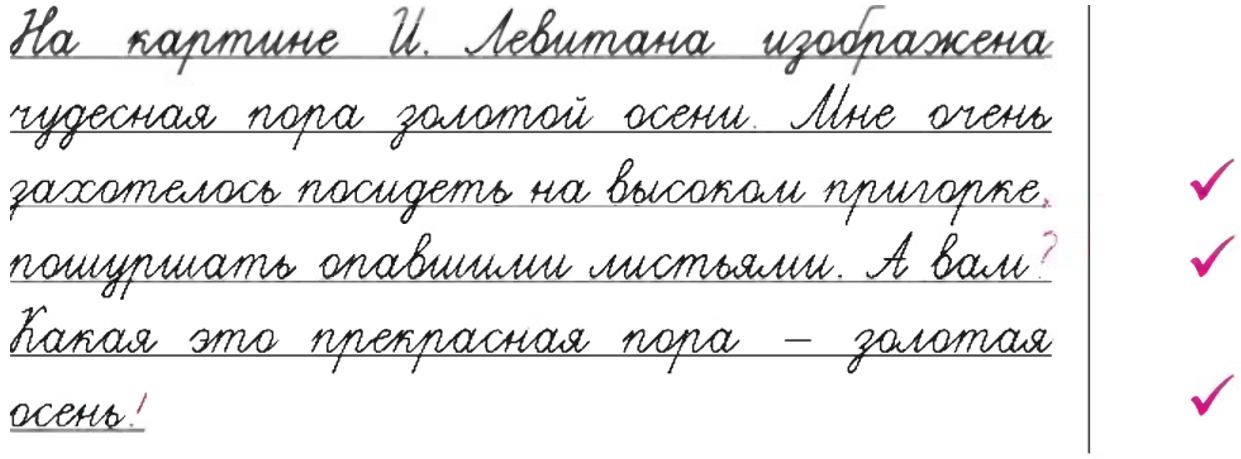 На картине И. Левитана изображена
чудесная пора золотой осени. Мне очень
захотелось посидеть на высоком пригорке,
пошуршать опавшими листьями. А вам?
Какая это прекрасная пора – золотая
осень!